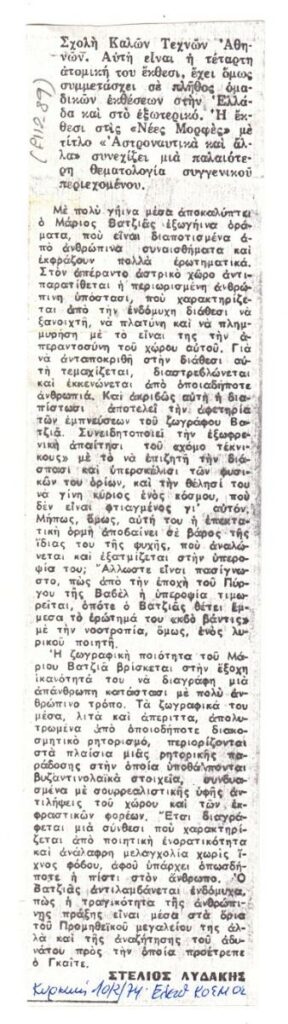 Σχολὴ Καλῶν Τεχνῶν Ἀθη-
νῶν. Αὐτὴ εἶναι ἡ τέταρτη
ἀτομική του ἔκθεσι, ἔχει ὅμως
συμμετάσχει σὲ πλῆθος ὁμα-
δικῶν ἐκθέσεων στὴν Ἑλλά-
δα καὶ στὸ ἐξωτερικό. Ἡ ἔκ-
θεσι στὶς «Νέες Μορφὲς» μὲ
τίτλο «Ἀστροναυτικὰ καὶ ἄλ-
λα» συνεχίζει μιὰ παλαιότε-
ρη θεματολογία συγγενικοῦ
περιεχομένου.
Μὲ πολὺ γήινα μέσα ἀποκαλύπτει
ὁ Μάριος Βατζιᾶς ἐξωγήινα ὁρά-
ματα, ποὺ εἶναι διαποτισμένα ἀ-
πὸ ἀνθρώπινα συναισθήματα καὶ
ἐκφράζουν πολλὰ ἐρωτηματικά.
Στὸν ἀπέραντο ἀστρικὸ χῶρο ἀντι-
παρατίθεται ἡ περιωρισμένη ἀνθρώ-
πινη ὑπόστασι, ποὺ χαρακτηρίζε-
ται ἀπὸ τὴν ἐνδόμυχη διάθεσι νὰ
ξανοιχτῆ, νὰ πλατύνη καὶ νὰ πλημ-
μυρήση μὲ τὸ εἶναι της τὴν ἀ-
περαντοσύνη τοῦ χώρου αὐτοῦ. Γιὰ
νὰ ἀνταποκριθῆ στὴν διάθεσι αὐ-
τὴ τεμαχίζεται, διαστρεβλώνεται
καὶ ἐκκενώνεται ἀπὸ ὁποιαδήποτε
ἀνθρωπιά. Καὶ ἀκριβῶς αὐτὴ ἡ δια-
πίστωσι ἀποτελεῖ τὴν ἀφετηρία
τῶν ἐμπνεύσεων τοῦ ζωγράφου Βα-
τζιᾶ. Συνειδητοποιεῖ τὴν ἐξωφρε-
νικὴ ἀπαίτησι τοῦ «χόμο τέκνι-
κους» μὲ τὸ νὰ ἐπιζητῆ τὴν διά-
σπασι καὶ ὑπερσκέλισι τῶν φυσι-
κῶν του ὁρίων, καὶ τὴν θέλησί του
νὰ γίνη κύριος ἑνὸς κόσμου, ποὺ
δὲν εἶναι φτιαγμένος γι' αὐτόν.
Μήπως, ὅμως, αὐτή του ἡ ἐπεκτα-
τικὴ ὁρμὴ ἀποβαίνει σὲ βάρος τῆς
ἴδιας του τῆς ψυχῆς, ποὺ ἀναλώ-
νεται καὶ ἐξατμίζεται στὴν ὑπερο-
ψία του; Ἄλλωστε εἶναι πασίγνω-
στο, πὼς ἀπὸ τὴν ἐποχὴ τοῦ Πύρ-
γου τῆς Βαβὲλ ἡ ὑπεροψία τιμω-
ρεῖται, ὁπότε ὁ Βατζιᾶς θέτει ἔμ-
μεσα τὸ ἐρώτημά του «κβὸ βάντις»
μὲ τὴν νοοτροπία, ὅμως, ἑνὸς λυ-
ρικοῦ ποιητῆ.
Ἡ ζωγραφικὴ ποιότητα τοῦ Μά-
ριου Βατζιᾶ βρίσκεται στὴν ἔξοχη
ἱκανότητά του νὰ διαγράφη μιὰ
ἀπάνθρωπη κατάστασι μὲ πολὺ ἀν-
θρώπινο τρόπο. Τὰ ζωγραφικά του
μέσα, λιτὰ καὶ ἀπέριττα, ἀπολυ-
τρωμένα ἀπὸ ὁποιοδήποτε διακο-
σμητικὸ ρητορισμό, περιορίζονται
στὰ πλαίσια μιᾶς ρητορικῆς πα-
ράδοσης στὴν ὁποία ὑποβάλλονται
βυζαντινολαϊκὰ στοιχεῖα, συνδυα-
σμένα μὲ σουρρεαλιστικῆς ὑφῆς ἀν-
τιλήψεις τοῦ χώρου καὶ τῶν ἐκ-
φραστικῶν φορέων. Ἔτσι διαγρά-
φεται μιὰ σύνθεσι ποὺ χαρακτηρί-
ζεται ἀπὸ ποιητικὴ ἐνορατικότητα
καὶ ἀνάλαφρη μελαγχολία χωρὶς ἴ-
χνος φόβου, ἀφοῦ ὑπάρχει ὁπωσδή-
ποτε ἡ πίστι στὸν ἄνθρωπο. Ὁ
Βατζιᾶς ἀντιλαμβάνεται ἐνδόμυχα,
πὼς ἡ τραγικότητα τῆς ἀνθρώπι-
νης πράξης εἶναι μέσα στὰ ὅρια
τοῦ Προμηθεϊκοῦ μεγαλείου της ἀλ-
λὰ καὶ τῆς ἀναζήτησης τοῦ ἀδυ-
νάτου πρὸς τὴν ὁποία προέτρεπε
ὁ Γκαῖτε.
ΣΤΕΛΙΟΣ ΛΥΔΑΚΗΣ
Κυριακὴ 10/2/74 Ελευθ ΚΟΣΜΟΣ